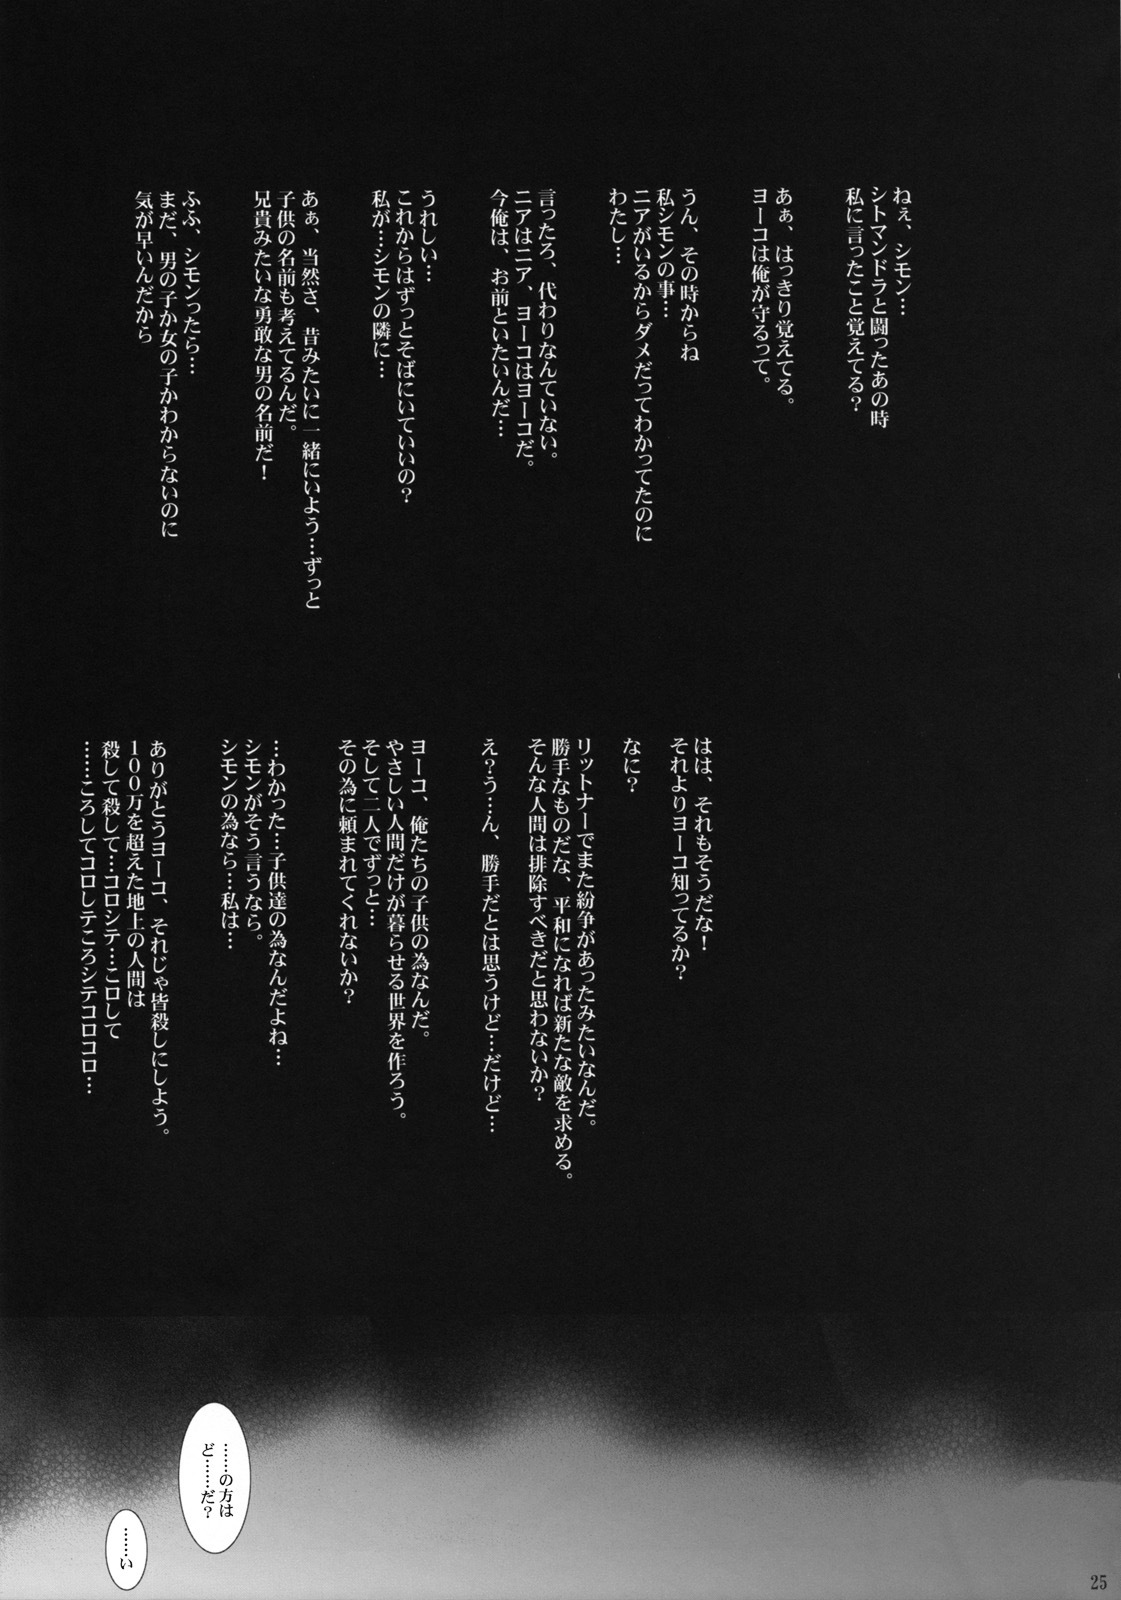 ねぇ、シモン…
シトマンドラと闘ったあの時
私に言ったこと覚えてる?
あぁ、はっきり覚えてる。
ヨーコは俺が守るって。
うん、その時からね
私シモンの事…
ニアがいるからダメだってわかってたのに
わたし…
言ったろ、代わりなんていない。
ニアはニア、ヨーコはヨーコだ。
今俺は、お前といたいんだ…
うれしい…
これからはずっとそばにいていいの?
私が…シモンの隣に…
あぁ、当然さ、昔みたいに一緒にいよう…ずっと
子供の名前も考えてるんだ。
兄貴みたいな勇敢な男の名前だ!
ふふ、シモンったら…
まだ、男の子か女の子かわからないのに
気が早いんだから
はは、それもそうだな!
それよりヨーコ知ってるか?
なに?
リットナーでまた紛争があったみたいなんだ。
勝手なものだな、平和になれば新たな敵を求める。
そんな人間は排除すべきだと思わないか?
え?う…ん、勝手だとは思うけど…だけど…
ヨーコ、俺たちの子供の為なんだ。
やさしい人間だけが暮らせる世界を作ろう。
そして二人でずっと…
その為に頼まれてくれないか?
…わかった…子供達の為なんだよね…
シモンがそう言うなら。
シモンの為なら…私は…
ありがとうヨーコ、それじゃ皆殺しにしよう。
100万を超えた地上の人間は
殺して殺して…コロシテ…こロして
……ころしてコロしテころシテコロコロ…
……の方は
ど……だ?
……い
25